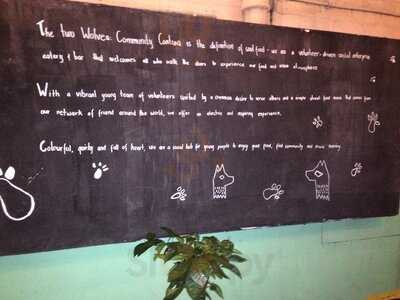 The Two Wolves: Community Cantina is the definition of soul food - we are a volunteer-driven social enterprise
eatery & bar that welcomes all who walk the doors to experience our food and warm atmosphere
With a vibrant young team of volunteers united by a common desire to serve others and a simple street food menu that comes from
our network of friend around the world, we offer an electric and inspiring experience.
Colourful, quirky and full of heart, we are a social hub for young people to enjoy great food, find community and meaning